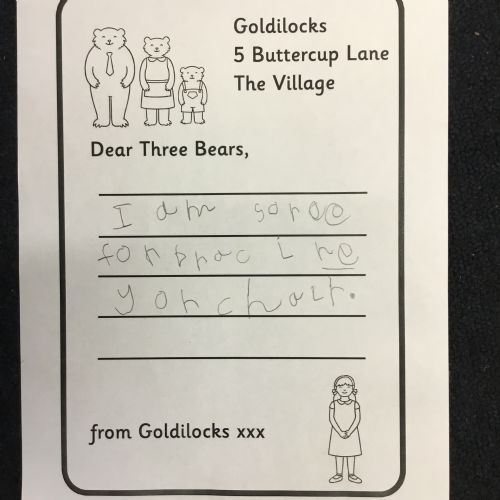 Goldilocks
5 Buttercup Lane
The Village
Dear Three Bears,
I am soree
for brac i ng
yor chair.
from Goldilocks xxx